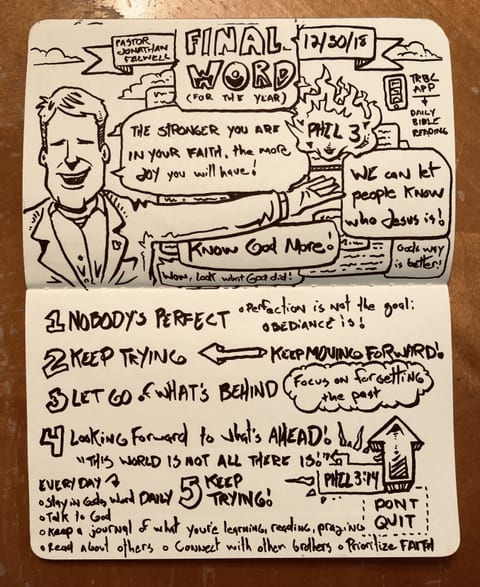 PASTOR
JONATHAN
FALWELL
FINAL
WORD
(FOR THE YEAR)
12/30/18
TRBC
APP
DAILY
BIBLE
READING
PHIL 3
THE STRONGER YOU ARE
IN YOUR FAITH, the more
JOY you will have!
WE can let
people know
who Jesus is!
KNOW God More!
God's way
is better!
Wow, look what God did!
1 NOBODY'S PERFECT
Perfection is not the goal:
OBEDIANCE is!
2 KEEP TRYING
KEEP MOVING FORWARD!
3 LET GO of WHAT'S BEHIND
Focus on forgetting
the past
4 Looking Forward to what's AHEAD!
"THIS WORLD IS NOT ALL THERE IS!"
PHIL 3:14
EVERY DAY
5 KEEP
TRYING!
Stay in God's Word DAILY
Talk to God
DONT
QUIT
Keep a journal of what you're learning, reading, praying
Read about others Connect with other brothers Prioritize FAITH